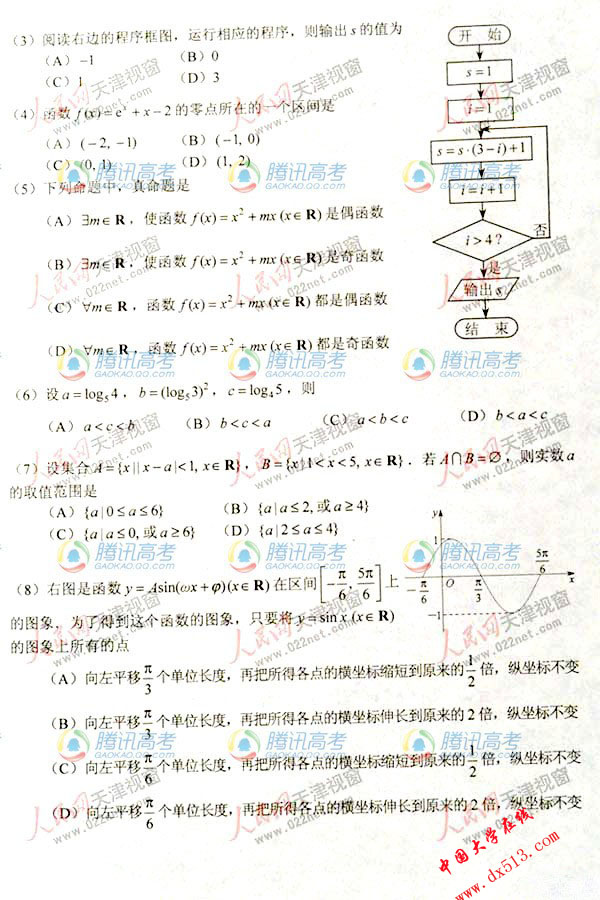 (3) 阅读右边的程序框图，运行相应的程序，则输出 s 的值为
(A) -1 (B) 0
(C) 1 (D) 3
开 始
s=1
i=1
s=s·(3-i)+1
i=i+1
i>4?
否
是
输出 s
结 束
(4) 函数 f(x)=eˣ+x-2 的零点所在的一个区间是
(A) (-2, -1) (B) (-1, 0)
(C) (0, 1) (D) (1, 2)
(5) 下列命题中，真命题是
(A) ∃m∈R，使函数 f(x)=x²+mx (x∈R) 是偶函数
(B) ∃m∈R，使函数 f(x)=x²+mx (x∈R) 是奇函数
(C) ∀m∈R，函数 f(x)=x²+mx (x∈R) 都是偶函数
(D) ∀m∈R，函数 f(x)=x²+mx (x∈R) 都是奇函数
(6) 设 a=log₅4，b=(log₅3)²，c=log₄5，则
(A) a<c<b (B) b<c<a (C) a<b<c (D) b<a<c
(7) 设集合 A={x||x-a|<1, x∈R}，B={x|1<x<5, x∈R}．若 A∩B=∅，则实数 a
的取值范围是
(A) {a|0≤a≤6} (B) {a|a≤2, 或 a≥4}
(C) {a|a≤0, 或 a≥6} (D) {a|2≤a≤4}
(8) 右图是函数 y=Asin(ωx+φ)(x∈R) 在区间 [-π/6, 5π/6] 上
的图象，为了得到这个函数的图象，只要将 y=sin x (x∈R)
的图象上所有的点
y
1
-π/6 O π/3 5π/6 x
-1
(A) 向左平移 π/3 个单位长度，再把所得各点的横坐标缩短到原来的 1/2 倍，纵坐标不变
(B) 向左平移 π/3 个单位长度，再把所得各点的横坐标伸长到原来的 2 倍，纵坐标不变
(C) 向左平移 π/6 个单位长度，再把所得各点的横坐标缩短到原来的 1/2 倍，纵坐标不变
(D) 向左平移 π/6 个单位长度，再把所得各点的横坐标伸长到原来的 2 倍，纵坐标不变
人民网 天津视窗
www.022net.com
腾讯高考
GAOKAO.QQ.COM
中国大学在线
www.dx513.com